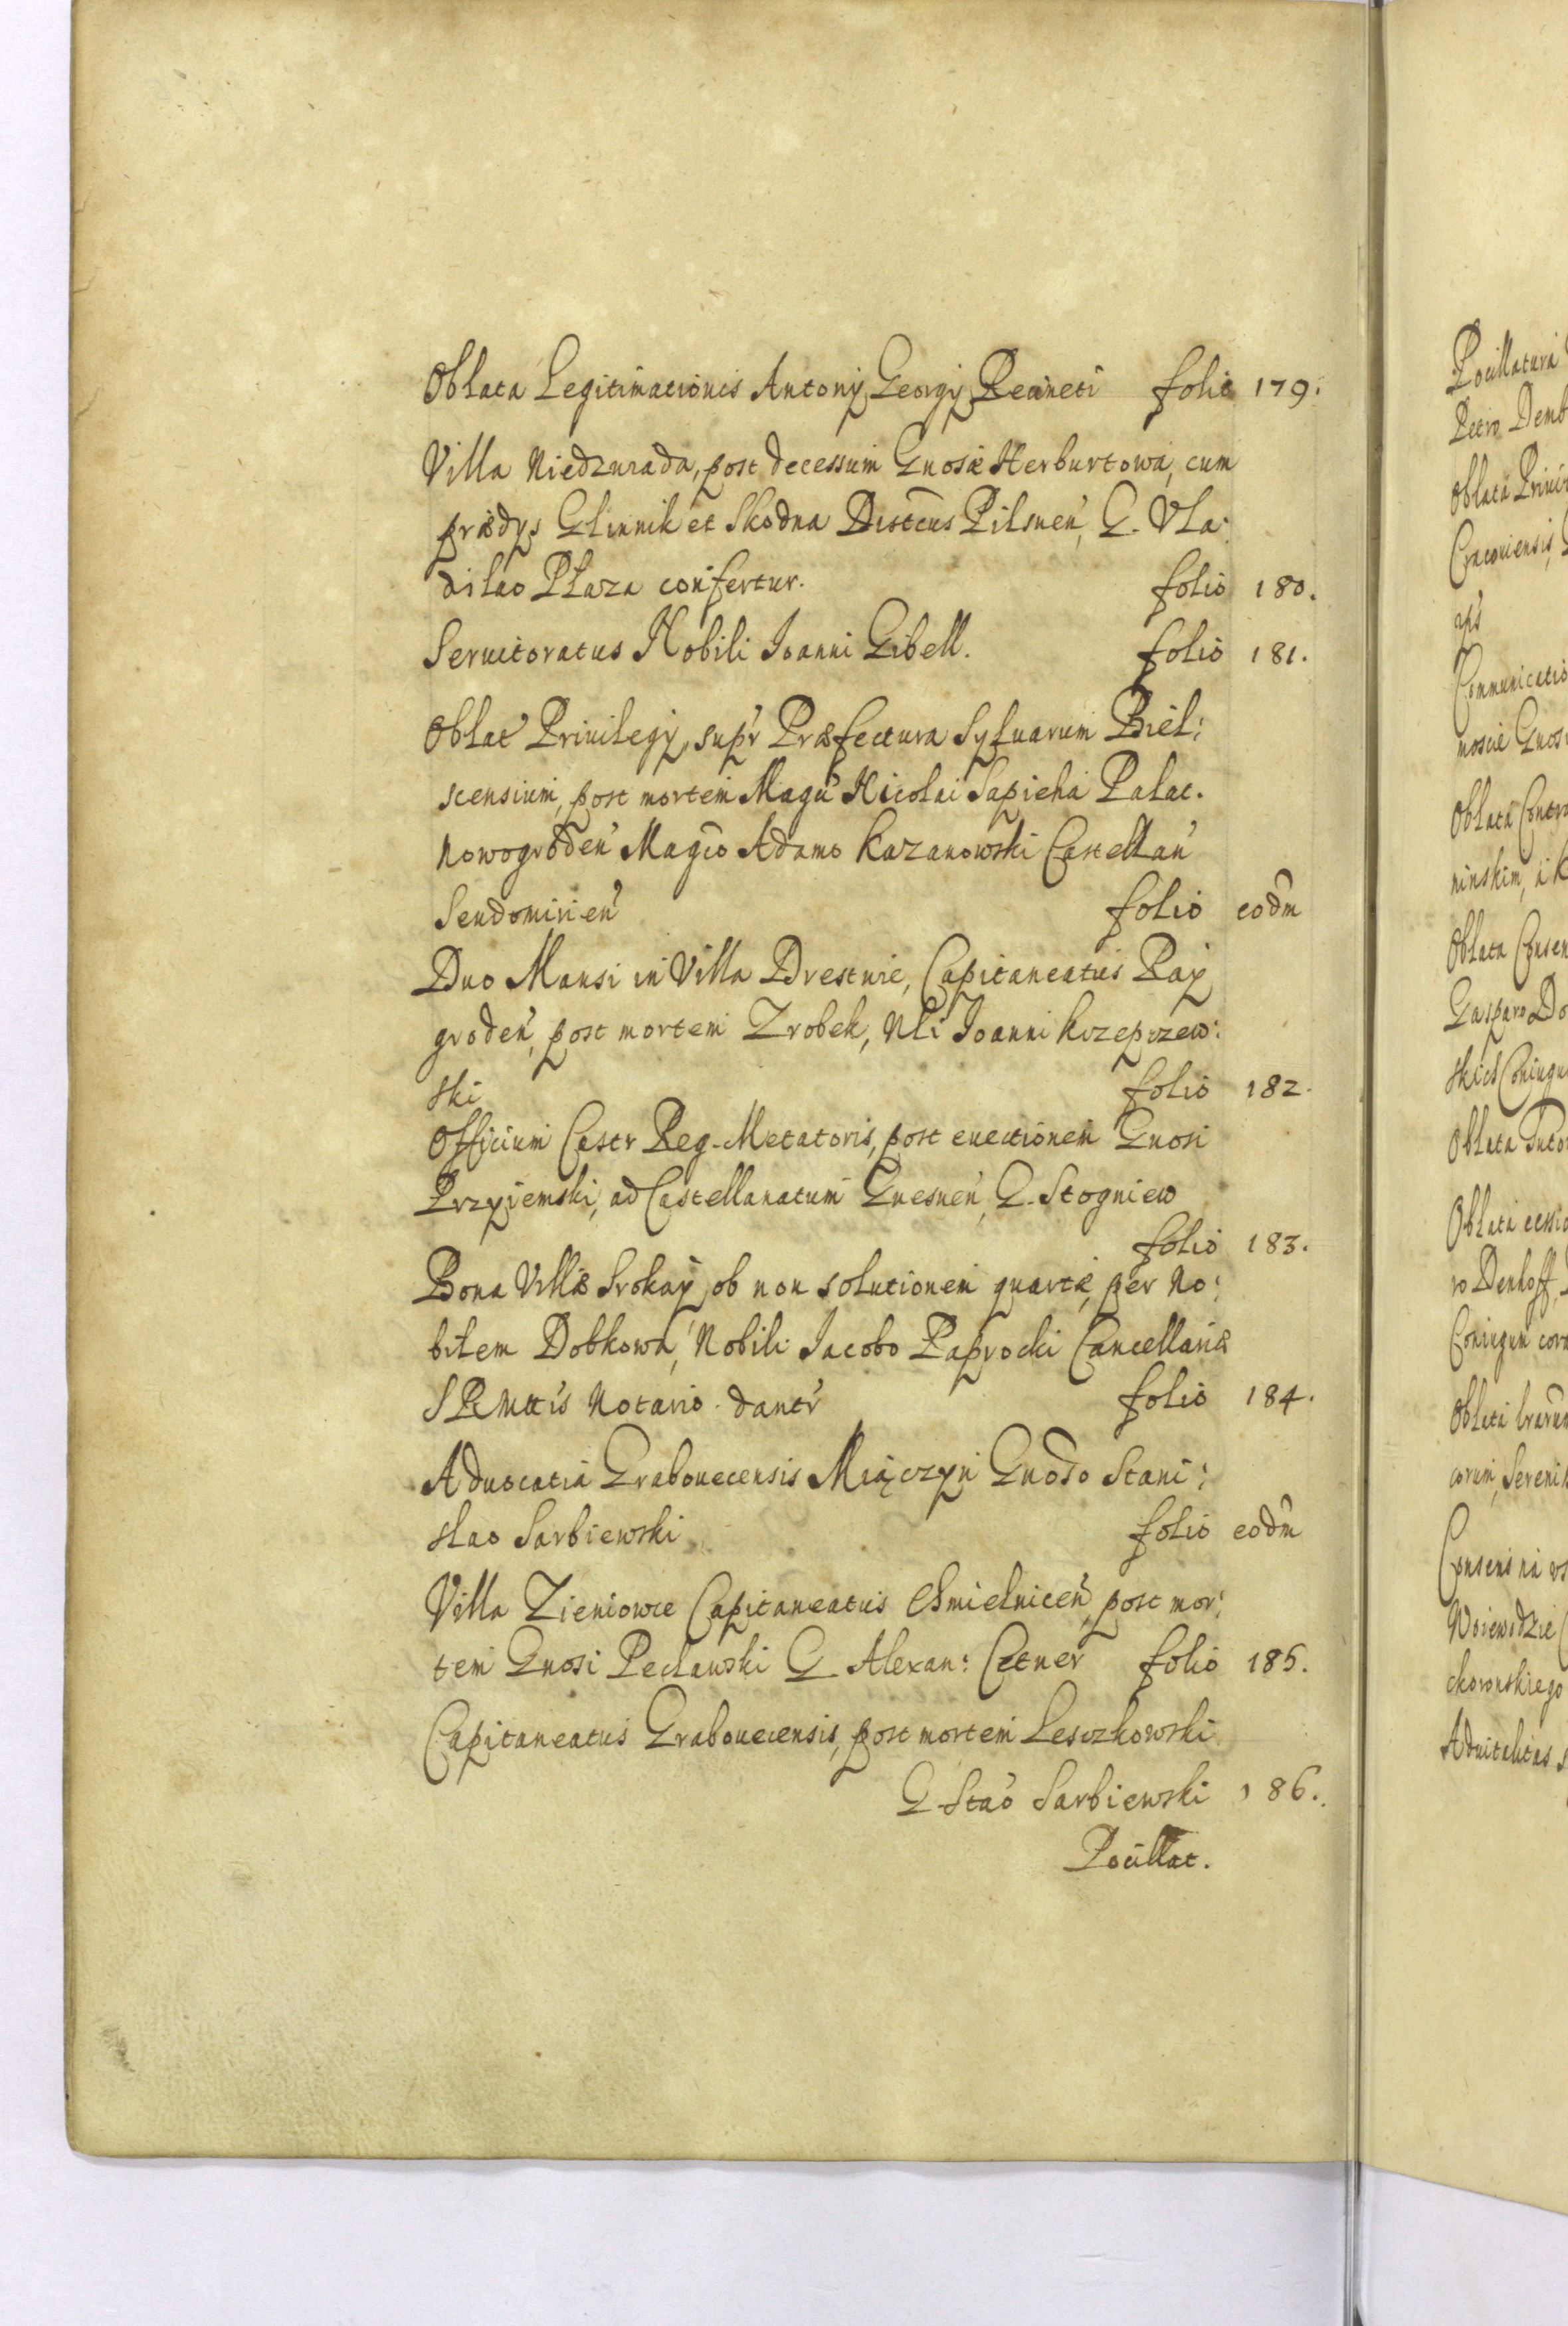 Oblata Legitimationis Antonij Georgij Reaineti folio 179.
Villa Niedzwiada, post decessum Gnosæ Herburtowa, cum
prædys Glinnik et Skodna Distcus Pilsnen, G. Vla:
dilao Płaza confertur. folio 180.
Seruitoratus Nobili Ioanni Gibell. folio 181.
Oblat Priuilegij, supr Præfectura Syluarum Biel:
scensium, post mortem Magci Nicolai Sapieha Palat.
Nowogroden Magco Adamo Kazanowski Castellan
Sendomirien folio eodm
Duo Mansi in Villa Drestwie, Capitaneatus Ray
groden, post mortem Zrobek, Nli Ioanni Krzepzew:
ski folio 182.
Officium Castr Reg. Metatoris, post euectionem Gnosi
Przyiemski, ad Castellanatum Gnesnen, G. Stogniew
folio 183.
Bona Villæ Srokay, ob non solutionem quartæ, per No:
bilem Dobkowa, Nobili Iacobo Paprocki Cancellariæ
SRMttis Notario dantr folio 184.
Aduocatia Grabouecensis Miączyn Gnoso Stani:
slao Sarbiewski folio eodm
Villa Zieniowce Capitaneatus Chmielnicen, post mor:
tem Gnosi Pecławski G. Alexan: Cetner folio 185.
Capitaneatus Grabouecensis, post mortem Lesczkowski
G. Stao Sarbiewski 186.
Pocillat.
Pocillatura
Petro Demb
Oblata Priui
Cracouiensis,
Communicatio
Oblata Contra
ninskim, a K
Oblata Consen
Gasparo Do
Oblata
Oblata cessio
ro Denhoff,
Coniugum cora
Oblata
corum, Sereni
Consens na
Woiewodzie
ckoronskiego
Aduitalitas